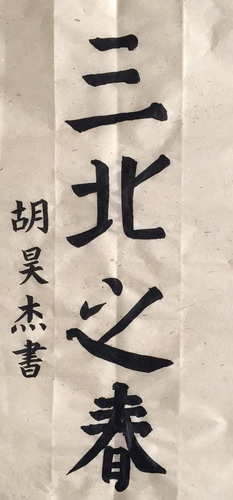 三北之春
胡昊杰書